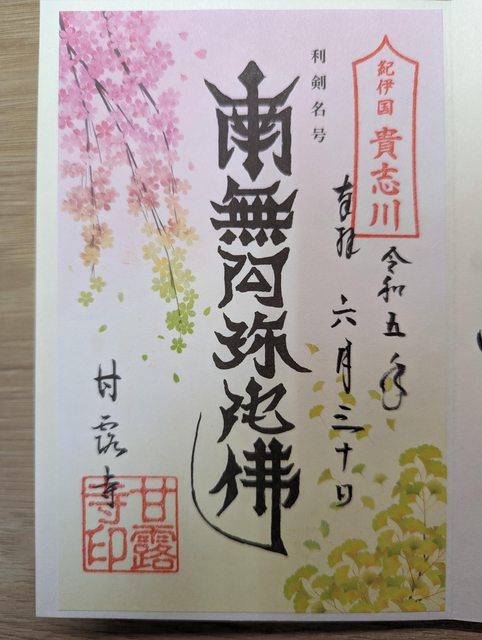 紀伊国 貴志川
令和五年
奉拝 六月三十日
利剣名号
南無阿弥陀佛
甘露寺
甘露
寺印